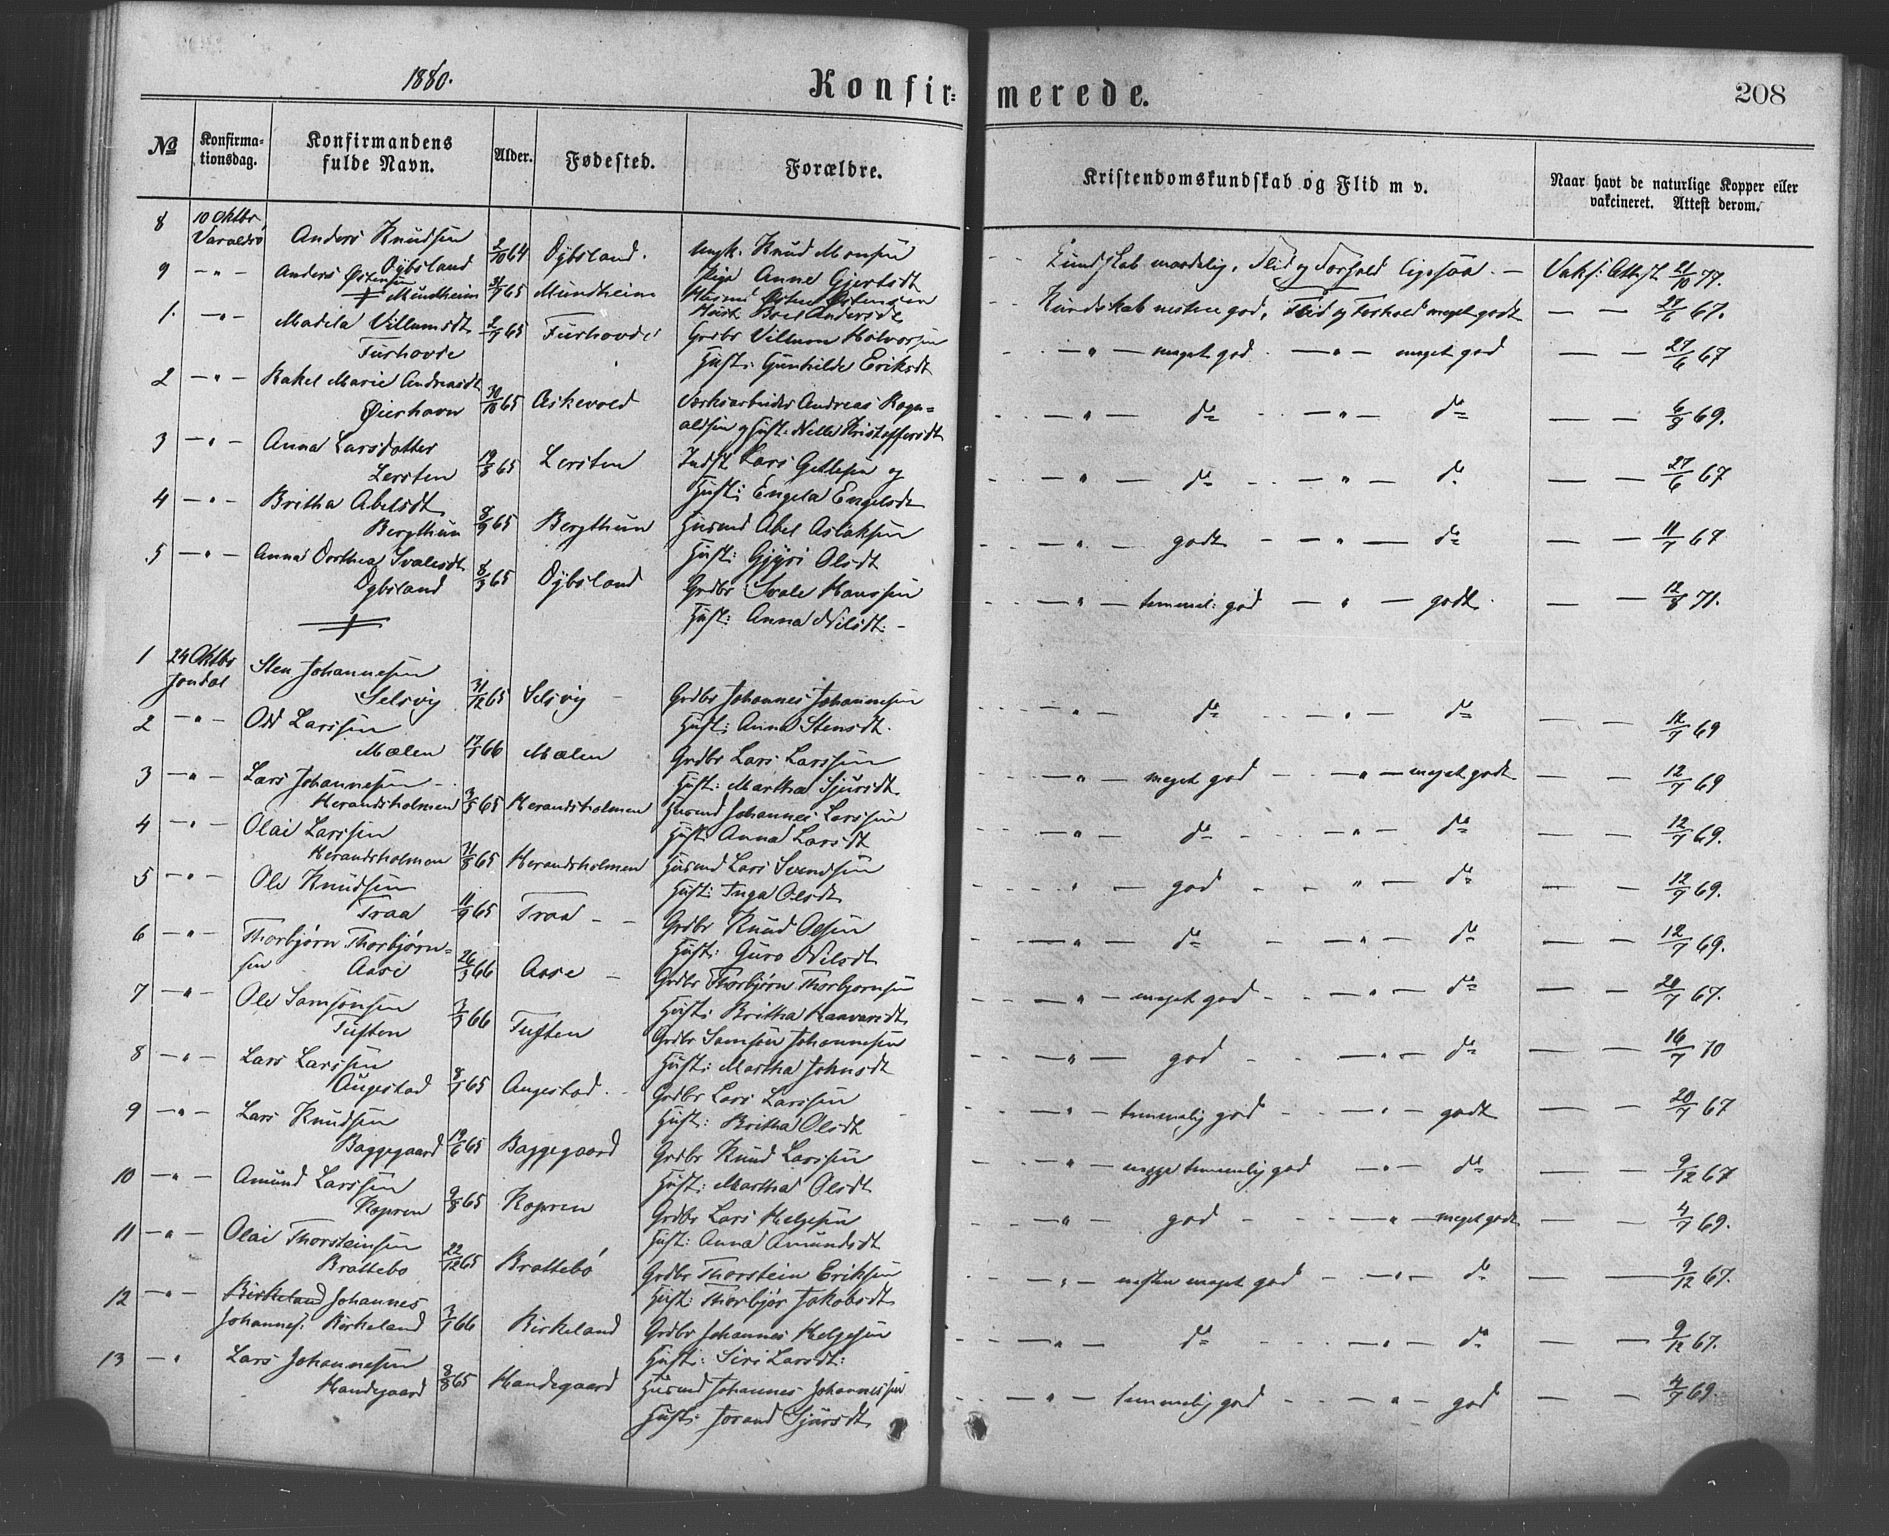 1880.
Konfir= merede.
208
No
Konfirma-
tionsdag.
Konfirmandens
fulde Navn.
Alder.
Fødested.
Forældre.
Kristendomskundskab og Flid m v.
Naar havt de naturlige Kopper eller
vakcineret. Attest derom.
8 10 Oktbr Varaldsø Anders Knudsen 2/10 64 Dybsland. Ungk. Knud Monsen
Dybsland Pige Anne Gjertsdt
Kundskab maadelig, Flid og Forhold ligesaa. — Vaks: Attest 21/10 77.
9 — " — Anders Østensen Mundheim 3/7 65 Mundheim Husmd Østen Østensen
Hustr. Andersdt
Kundskab nesten god, Flid og Forhold meget godt — — 27/6 67.
1. — " — Madela Villumsdt 2/7 65 Furhovde Grdbr Villum Halvorsen
Furhovde Hust: Gunhilde Eriksdt
— " — meget god — " — meget god — — 27/6 67
2 — " — Rakel Marie Andreasdt 30/10 65 Askevold Værksarbeider Andreas Ragn=
Øierhavn aldsen og Hust: Nille Kristoffersdt
— " — do — " — do — — 6/8 69.
3 — " — Anna Larsdatter 19/8 65 Lersten Indst Lars Getlesen og
Lersten Hust: Engela Engelsdt
— " — do — " — do — — 27/6 67
4 — " — Britha Abelsdt 8/9 65 Bergthun Husmd Abel Aslaksen
Bergthun Hust: Gjyri Olsdt
— " — godt — " — do — — 11/7 67
5 — " — Anna Dorthea Svalesdt 8/3 65 Dybsland Grdbr Svale Hanssen
Dybsland Hust: Anna Nilsdt.
— " — temmel: god — " — godt — — 12/8 71.
1 24 Oktbr Jondal Sten Johannesen 31/12 65 Selsvig Grdbr Johannes Johannesen
Selsvig Hust: Anna Stensdt.
— " — do — " — do — — 12/7 69
2 — " — Odd Larssen 17/1 66 Mælen Grdbr Lars Larssen
Mælen Hust: Martha Sjursdt
— " — meget god — " — meget godt — — 12/7 69
3 — " — Lars Johannesen 3/5 65 Herandsholmen Husmd Johannes Larssen
Herandsholmen Hust: Anna Larsdt
— " — do — " — do — — 12/7 69.
4 — " — Olai Larssen 31/8 65 Herandsholmen Husmd Lars Svendsen
Herandsholmen Hust: Inga Olsdt
— " — god — " — do — — 12/7 69.
5 — " — Ole Knudsen 11/9 65 Traa Grdbr Knud Olsen
Traa Hust: Guro Nilsdt
— " — do — " — do — — 12/7 69.
6 — " — Thorbjørn Thorbjørn= 26/3 66 Aase Grdbr Thorbjørn Thorbjørnsen
sen Aase Hust: Britha Haavarsdt
— " — meget god — " — do — — 20/7 67.
7 — " — Ole Samsonsen 3/3 66 Tuften Grdbr Samson Johannesen
Tuften Hust: Martha Johnsdt
— " — god — " — do — — 16/7 70
8 — " — Lars Larssen 8/7 65 Augestad Grdbr Lars Larssen
Augestad Hust: Britha Olsdt
— " — temmelig god — " — godt — — 20/7 67
9 — " — Lars Knudsen 19/6 65 Baggegaard Grdbr Knud Larssen
Baggegaard Hust: Martha Olsdt
— " — temmelig god — " — do — — 9/12 67
10 — " — Amund Larssen 9/8 65 Kopren Grdbr Lars Helgesen
Kopren Hust: Anna Amundsdt
— " — god — " — meget godt — — 4/7 69.
11 — " — Olai Thorsteinsen 22/12 65 Brattebø Grdbr Thorstein Eriksen
Brattebø Hust: Thorbjør Jakobsdt
— " — nesten meget god — " — do — — 9/12 67.
12 — " — Birkeland Johannes 3/1 66 Birkeland Grdbr Johannes Helgesen
Johannes. Birkeland Hust: Siri Larsdt:
— " — do — " — do — — 9/12 67.
13 — " Lars Johannesen 8/8 65 Handegaard Husmd Johannes Johannessen
Handegaard Hust: Jorand Sjursdt
— " — temmelig god — " — god — — 4/7 69.